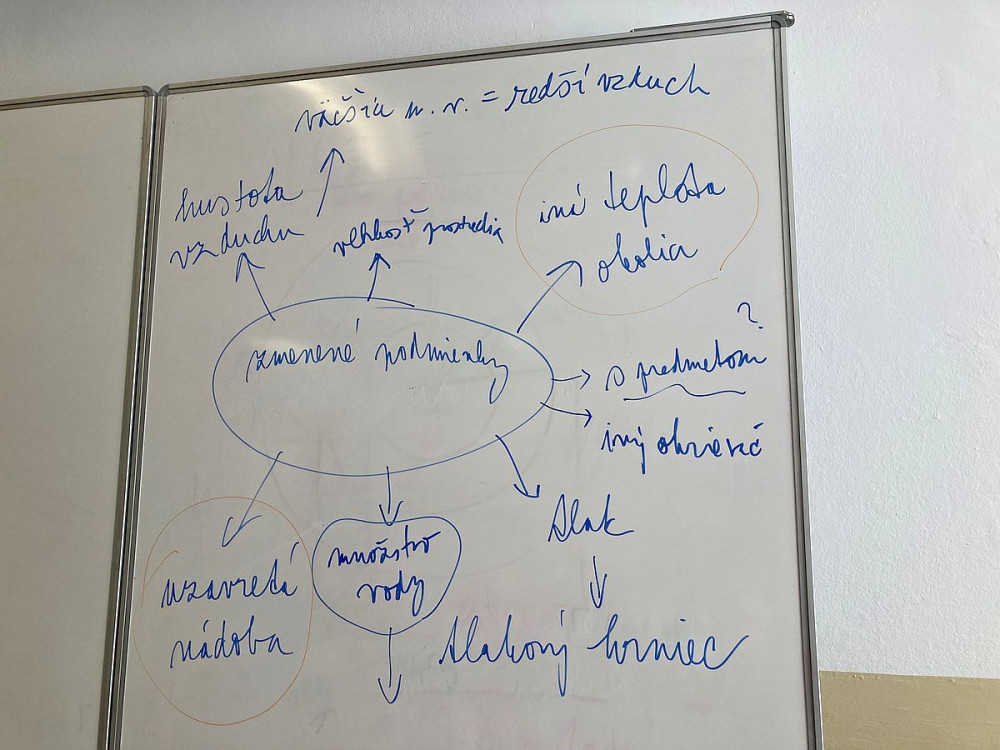 väčšia n. v. = redší vzduch
hustota
vzduchu
vlhkosť prostredia
iná teplota
okolia
zmenené podmienky
?
s predmetom
iný ohrievač
tlak
tlakový hrniec
množstvo
vody
uzavretá
nádoba